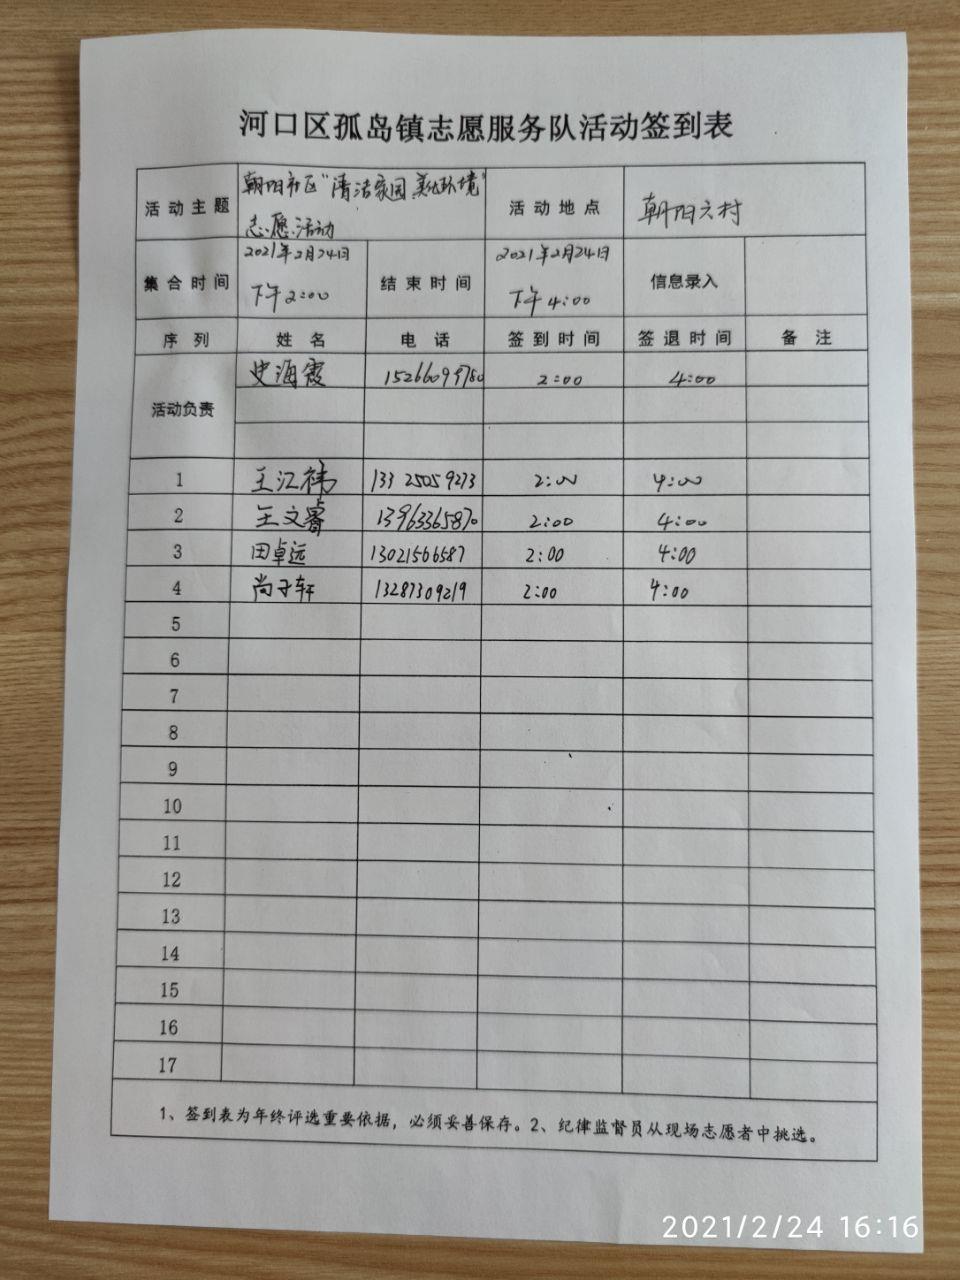 河口区孤岛镇志愿服务队活动签到表
活动主题 朝阳市区"清洁家园 美化环境" 活动地点 朝阳六村
志愿活动
集合时间 2021年2月24日 结束时间 2021年2月24日 信息录入
下午2:00 下午4:00
序列 姓名 电话 签到时间 签退时间 备注
活动负责 史海霞 2:00 4:00
1 王江祎 133 25059273 2:00 4:00
2 王文睿 13963365870 2:00 4:00
3 田卓远 13021566587 2:00 4:00
4 尚子轩 13287309219 2:00 4:00
5
6
7
8
9
10
11
12
13
14
15
16
17
1、签到表为年终评选重要依据，必须妥善保存。2、纪律监督员从现场志愿者中挑选。
2021/2/24 16:16